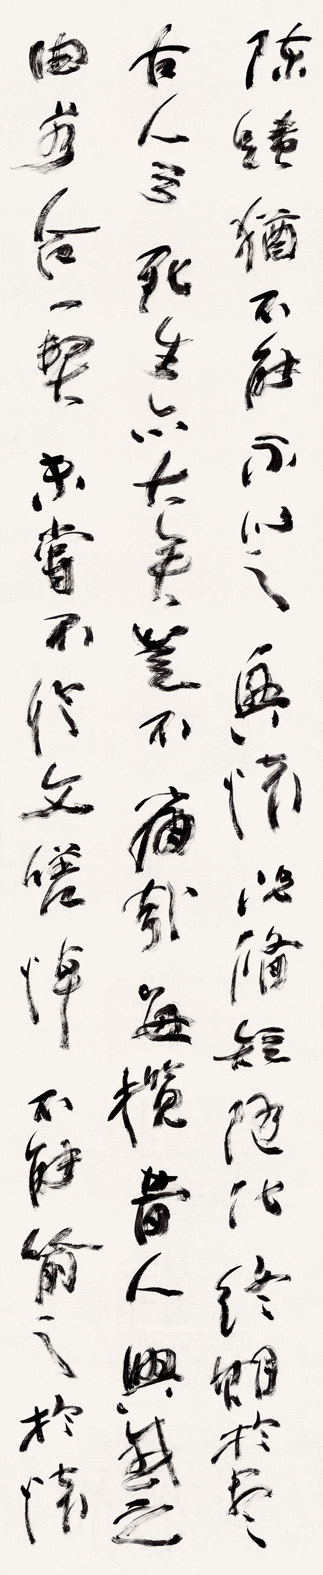 陳蹟猶不能不以之興懷況脩短隨化終期於盡
古人云死生亦大矣豈不痛哉每攬昔人興感之
由若合一契未嘗不臨文嗟悼不能喻之於懷